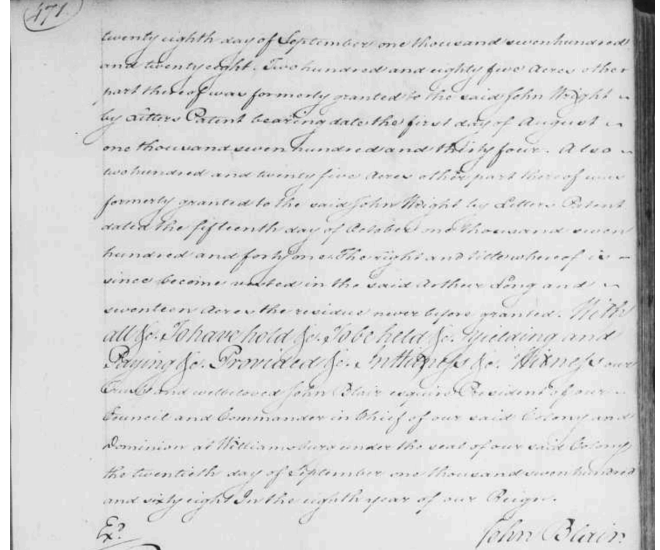 471.
twenty eighth day of September one thousand seven hundred
and twenty eight. Two hundred and eighty five Acres other
part thereof was formerly granted to the said John Wright
by Letters Patent bearing date the first day of August
one thousand seven hundred and thirty four. Also
two hundred and twenty five Acres other part thereof was
formerly granted to the said John Wright by Letters Patent
dated the fifteenth day of October one thousand seven
hundred and forty one The right and title whereof is
since become vested in the said Arthur Long and
seventeen Acres the residue never before granted. With
all &c. To have hold &c. To be held &c. Yielding and
Paying &c. Provided &c. In Witness &c. Witness our
Trusty and welbeloved John Blair esquire President of our
Council and Commander in Chief of our said Colony and
Dominion at Williamsburg under the seal of our said Colony
the twentieth day of September one thousand seven hundred
and sixty eight In the eighth year of our Reign.
Exd. John Blair